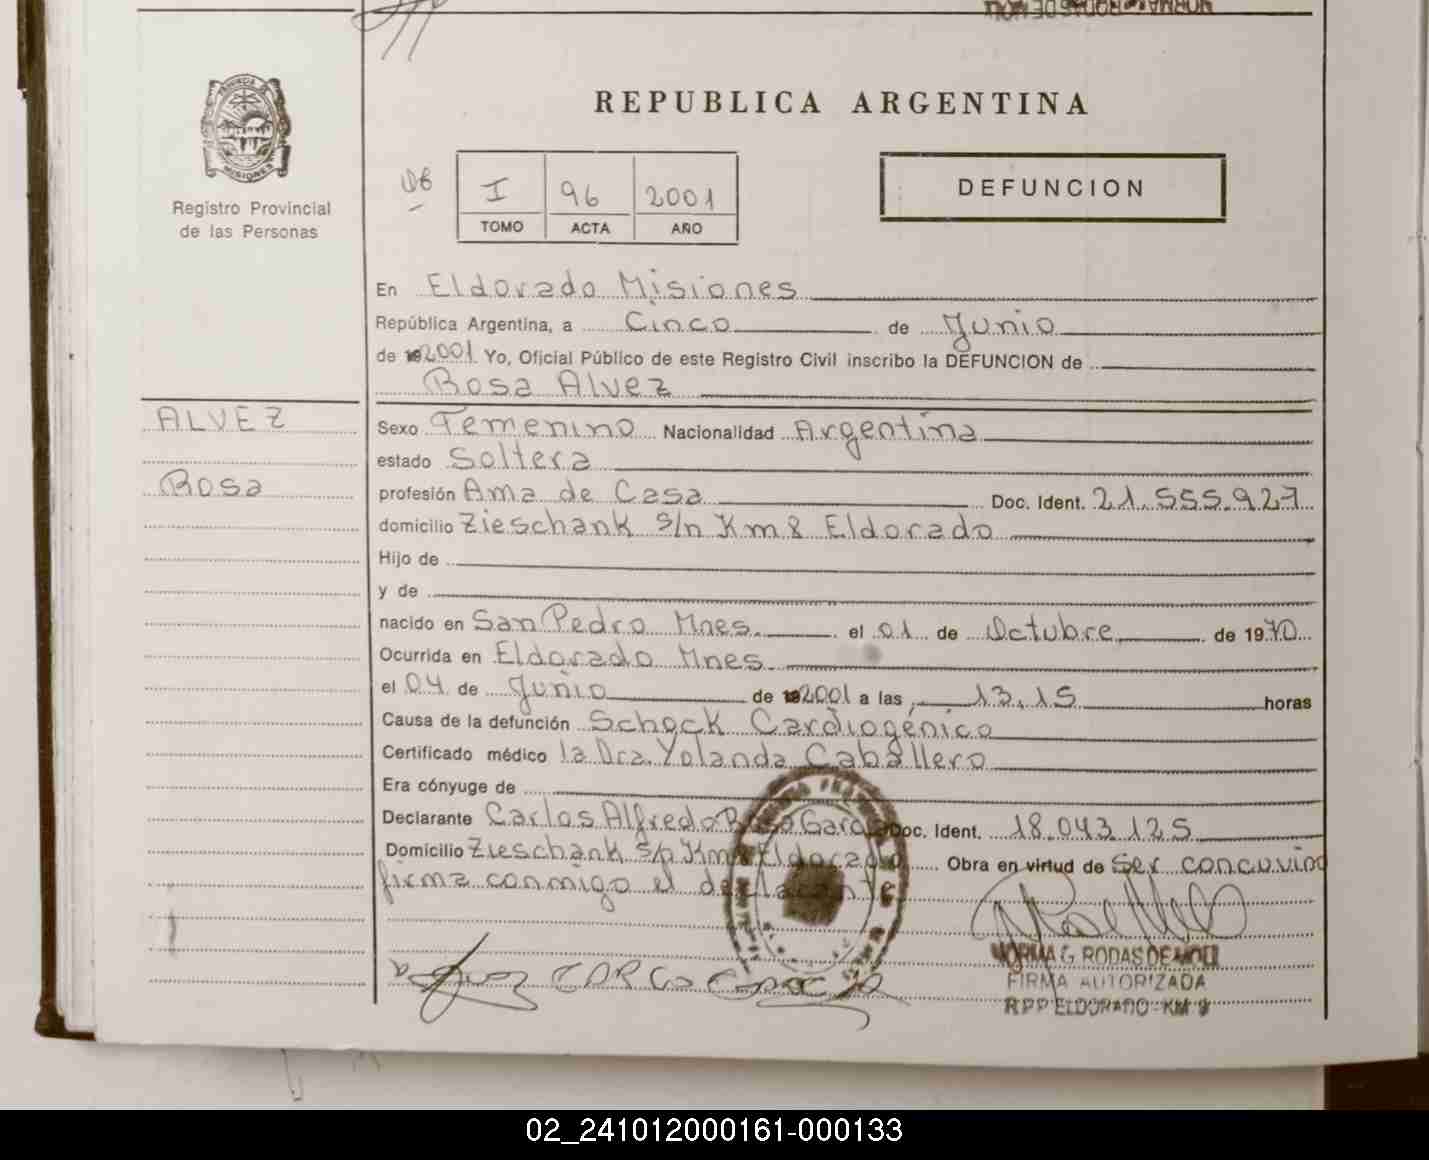 NORMA G. RODAS DE MOLL
REPUBLICA ARGENTINA
PROVINCIA DE
MISIONES
Registro Provincial
de las Personas
I 96 2001
TOMO ACTA AÑO
DEFUNCION
En Eldorado Misiones
República Argentina, a Cinco de Junio
de 2001 Yo, Oficial Público de este Registro Civil inscribo la DEFUNCION de
Rosa Alvez
ALVEZ
Rosa
Sexo Femenino Nacionalidad Argentina
estado Soltera
profesión Ama de Casa Doc. Ident. 21.555.927
domicilio Zieschank s/n Km 8 Eldorado
Hijo de
y de
nacido en San Pedro Mnes. el 01 de Octubre de 1970
Ocurrida en Eldorado Mnes
el 04 de Junio de 2001 a las 13,15 horas
Causa de la defunción Schock Cardiogénico
Certificado médico la Dra. Yolanda Caballero
Era cónyuge de
Declarante Carlos Alfredo Doc. Ident. 18.043.125
Domicilio Zieschank s/n Km 8 Eldorado Obra en virtud de ser concuvino
firma conmigo el declarante
NORMA G. RODAS DE MOLL
FIRMA AUTORIZADA
R.P.P. ELDORADO - KM 9
02_241012000161-000133